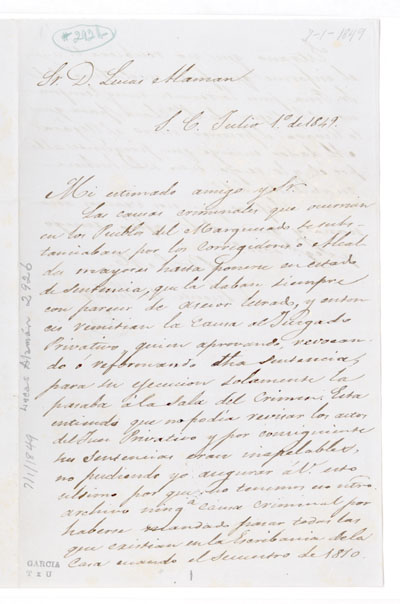 # 2926
7-1-1849
Sr. D. Lucas Alaman
S. C. Julio 1º de 1849.
Mi estimado amigo y Sr.
Las causas criminales que ocurrian
en los Pueblos del Marquesado se subs
tanciaban por los Corregidores ó Alcal
des mayores hasta ponerse en estado
de Sentencia, que la daban siempre
con parecer de asesor letrado, y enton
ces remitian la causa al Juzgado
Privativo, quien aprovando, revocan
do ó reformando dha sentencia,
para su ejecucion solamente la
pasaba á la Sala del Crimen. Esta
entiendo que no podia revisar los autos
del Juez Privativo y por consiguiente
sus sentencias eran inapelables,
no pudiendo yo asegurar á V. esto
ultimo por que no tenemos en otro
archivo ningª causa criminal por
haberse mandado pasar todas las
que existian en la Escribania de la
Casa cuando el Secuestro de 1810.
7/1/1849 Lucas Alamán 2926
GARCIA